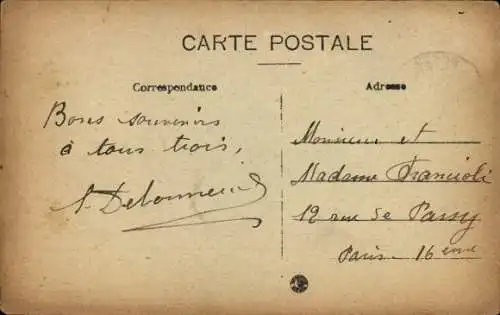 CARTE POSTALE
Correspondance
Adresse
Bons souvenirs
à tous trois,
Monsieur et
Madame Francioli
12 rue de Passy
Paris - 16ème